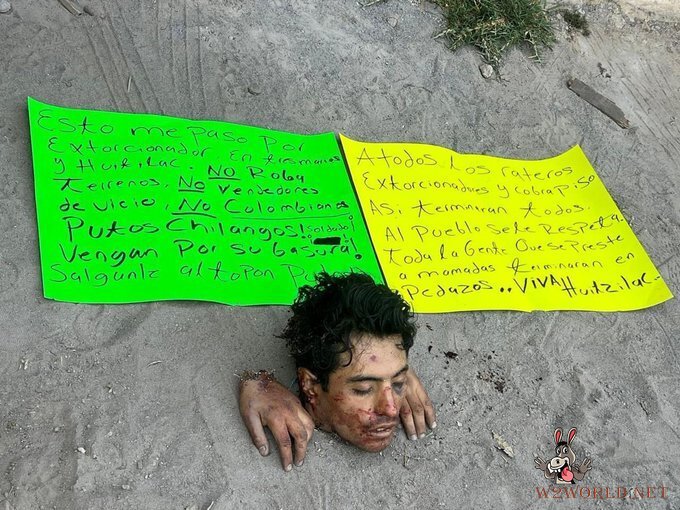 Esto me paso por
Extorcionador en tresmarias
y Huitzilac. No Roba
terrenos, No vendedores
de vicio, No Colombianos
Putos Chilangos! soldado!
Vengan Por su basura!
Salganle al topon
A todos los rateros
Extorcionadores y cobra Piso
Asi terminaran todos.
Al Pueblo se le Respeta.
toda la Gente Que se Preste
a mamadas terminaran en
Pedazos.. VIVA Huitzilac
W2WORLD.NET